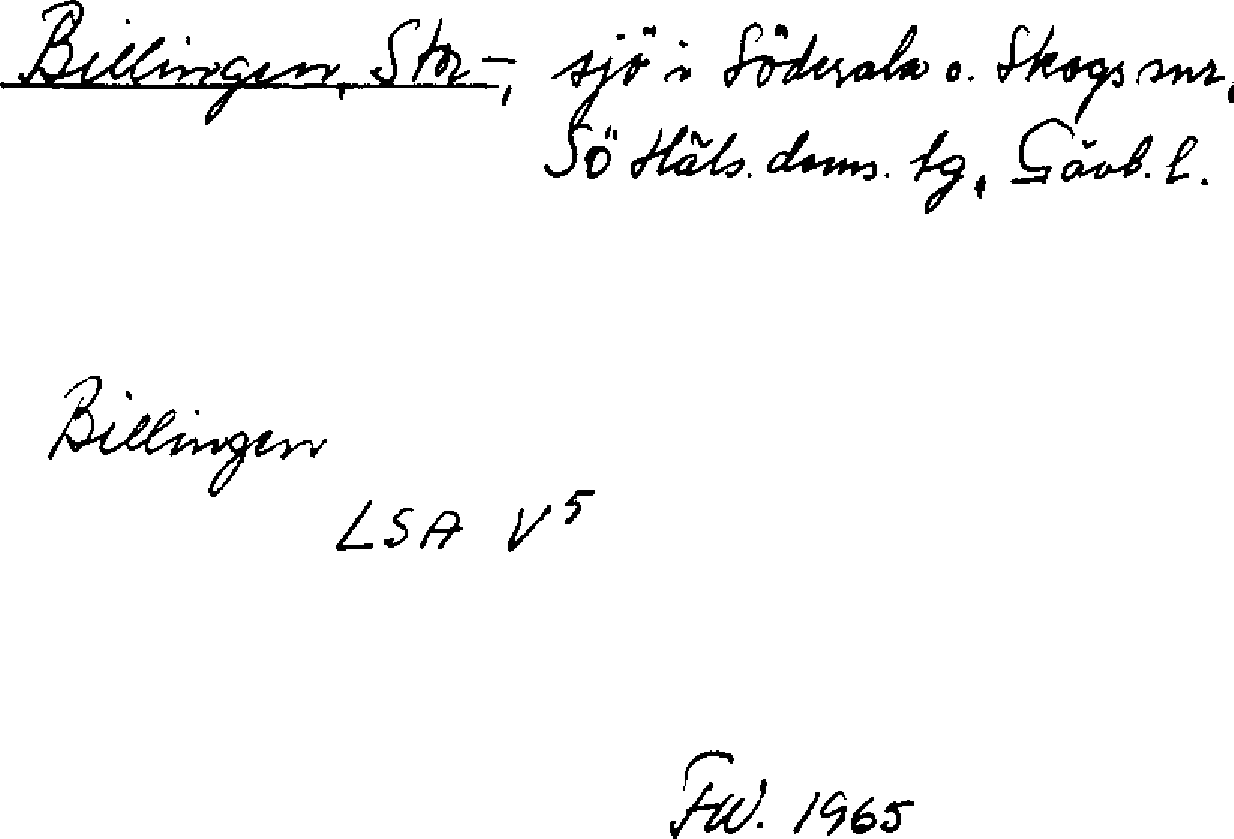 Billingen, Stor-, sjö i Söderala o. Skogs snr,
Sö Häls. doms. tg, Gävb. l.
Billingen
LSA V⁵
FW. 1965